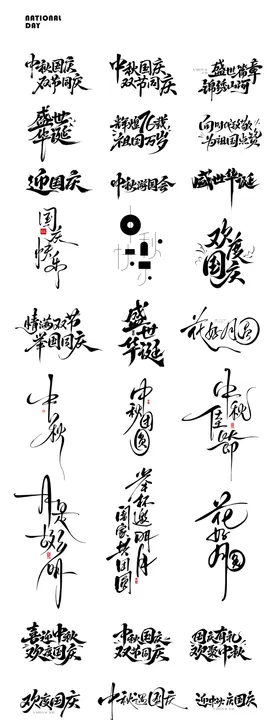 NATIONAL
DAY
中秋国庆
双节同庆
中秋国庆
双节同庆
盛世华章
锦绣山河
盛世
华诞
辉煌76载
祖国万岁
向时代致敬
为祖国点赞
迎国庆
中秋游园会
盛世华诞
国庆快乐
中秋
欢度
国庆
情满双节
举国同庆
盛世
华诞
花好月圆
中秋
中秋团圆
中秋佳节
月是故乡明
举杯邀明月
阖家共团圆
花好月圆
喜迎中秋
欢度国庆
中秋国庆
双节同庆
国庆有礼
欢聚中秋
欢度国庆
中秋遇国庆
迎中秋庆国庆